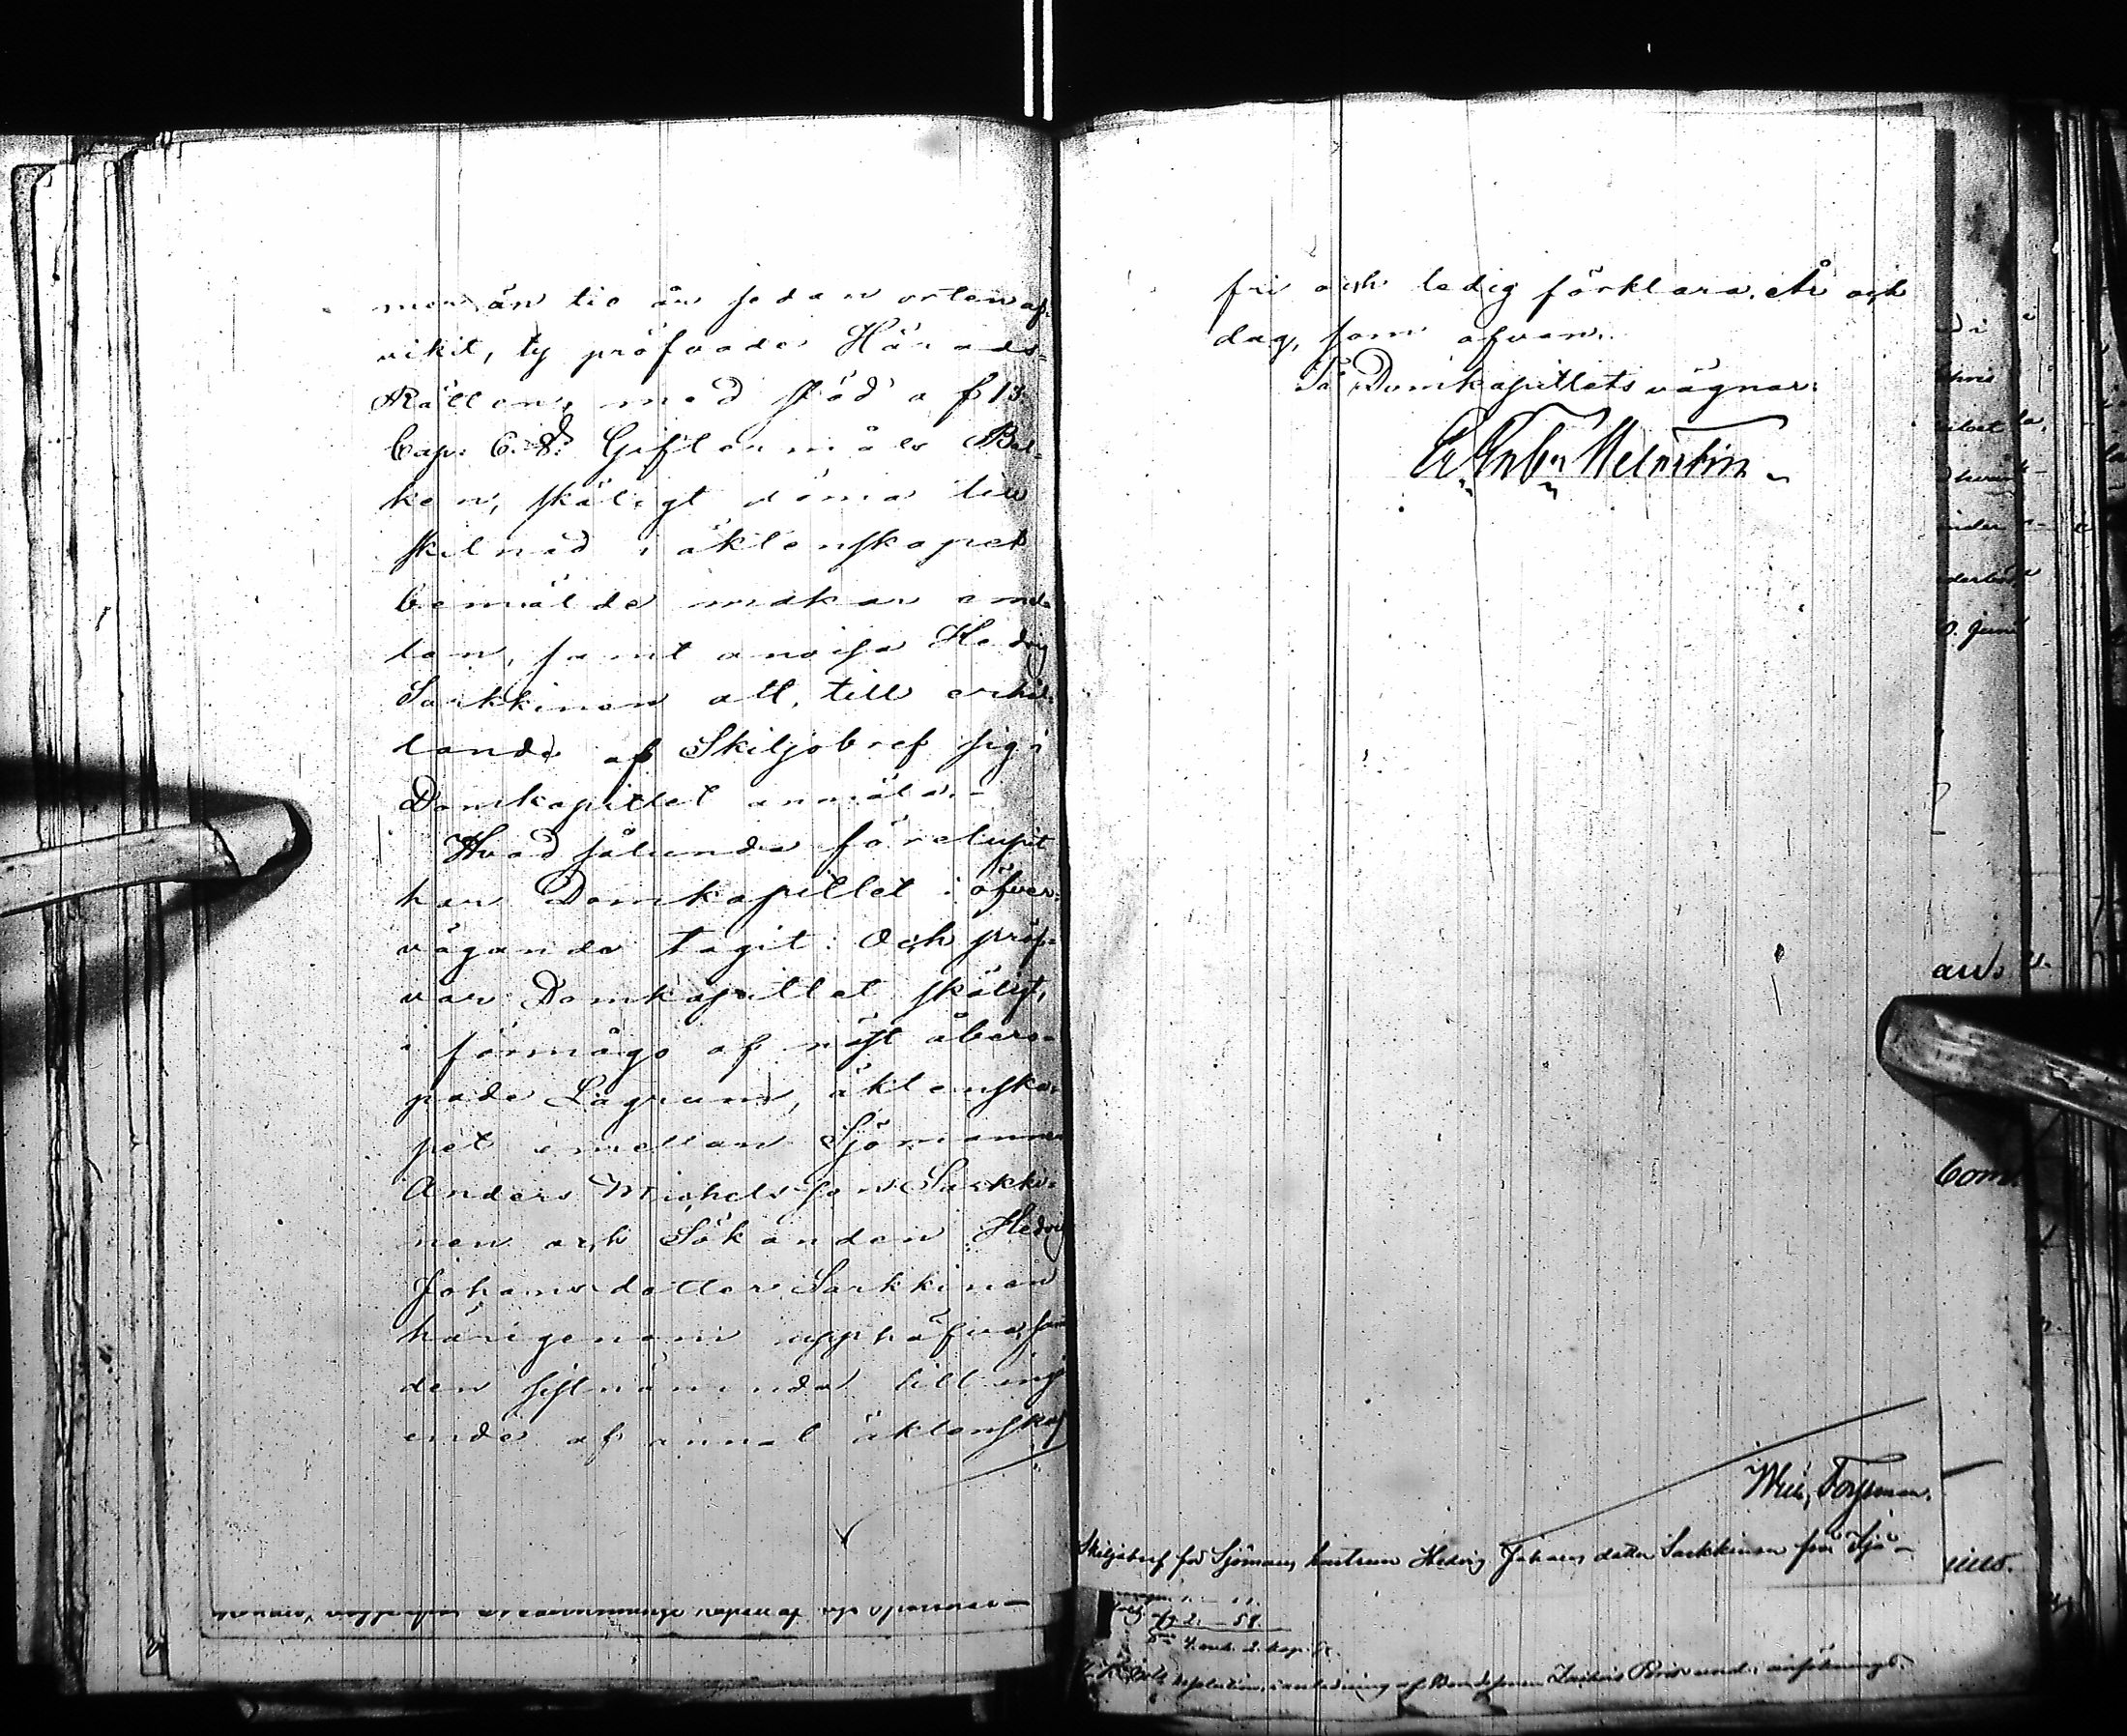 mer än tio år sedan orten af-
vikit, ty pröfvade Härads-
Rätten, med stöd af 13.
Cap. 6. §. Giftermåls Bal-
ken, skäligt döma till
skilnad i äktenskapet
bemälde makar emel-
lan, samt anvisa Hedvig
Sarkkinen att, till erhål-
lande af Skiljobref sig i
Domkapitlet anmäla.-
Hvad sålunda förelupit
har Domkapitlet i öfver-
vägande tagit: Och pröf-
var Domkapitlet skäligt,
i förmågo af näst åbero-
pade Lagrum, äktenska-
pet emellan Sjömannen
Anders Michelsson Sarkki-
nen och Sökanden Hedvig
Johansdotter Sarkkinen
härigenom upphäfva, samt
den sistnämnda till ingå-
ende af annat äktenskap
fri och ledig förklara. År och
dag, som ofvan.
På Domkapitlets vägnar:
Forssman.
Skiljobref för Sjömans hustrun Hedvig Johans dotter Sarkkinen från